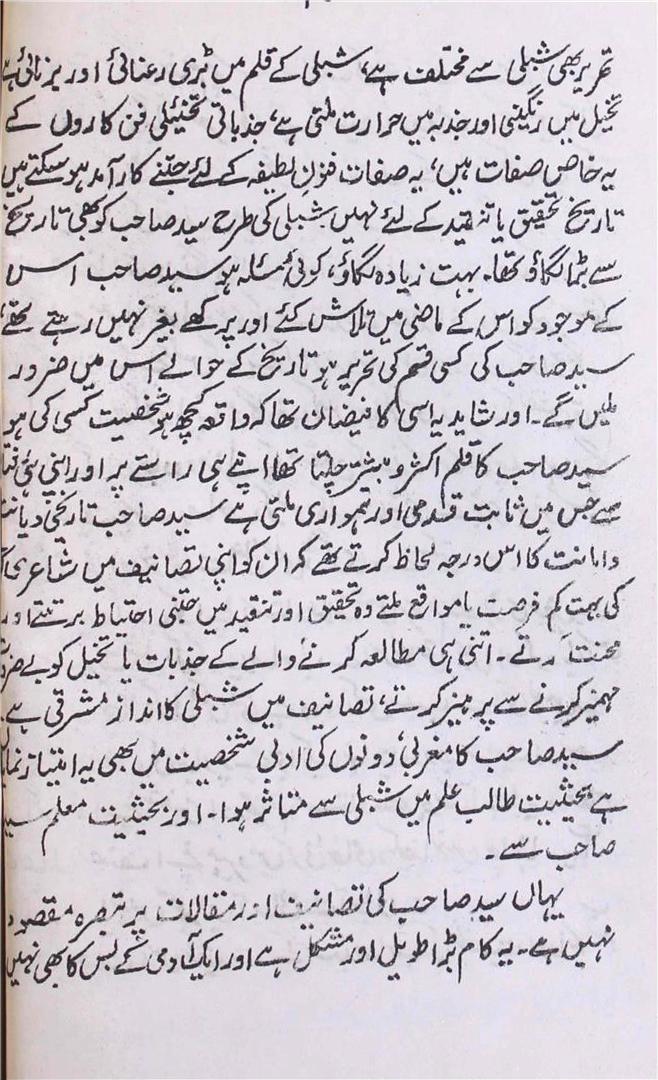 تحریر بھی شبلی سے مختلف ہے، شبلی کے قلم میں بڑی رعنائی اور برنائی ہے
تخیل میں رنگینی اور جذبہ میں حرارت ملتی ہے، جذباتی تخئیلی فن کاروں کے
یہ خاص صفات ہیں، یہ صفات فنونِ لطیفہ کے لئے جتنے کارآمد ہو سکتے ہیں
تاریخ تحقیق یا تنقید کے لئے نہیں۔ شبلی کی طرح سید صاحب کو بھی تاریخ
سے بڑا لگاؤ تھا۔ بہت زیادہ لگاؤ، کوئی مسئلہ ہو سید صاحب اس
کے موجود کو اس کے ماضی میں تلاش کئے اور پرکھے بغیر نہیں رہتے تھے،
سید صاحب کی کسی قسم کی تحریر ہو تاریخ کے حوالے اس میں ضرور
ملیں گے۔ اور شاید یہ اسی کا فیضان تھا کہ واقعہ کچھ ہو شخصیت کسی کی ہو
سید صاحب کا قلم اکثر و بیشتر چلتا تھا اپنے ہی راستے پر اور اپنی ہی
سے جس میں ثابت قدمی اور ہمواری ملتی ہے سید صاحب تاریخی دیانت
و امانت کا اس درجہ لحاظ کرتے تھے کہ ان کو اپنی تصانیف میں شاعری
کی بہت کم فرصت یا مواقع ملتے وہ تحقیق اور تنقید میں جتنی احتیاط برتتے اور
محنت کرتے۔ اتنی ہی مطالعہ کرنے والے کے جذبات یا تخیل کو بے ضرورت
مہمیز کرنے سے پرہیز کرتے، تصانیف میں شبلی کا انداز مشرقی ہے
سید صاحب کا مغربی، دونوں کی ادبی شخصیت میں بھی یہ امتیاز نمایاں
ہے بحیثیت طالب علم میں شبلی سے متاثر ہوا۔ اور بحیثیت معلم سید
صاحب سے۔
یہاں سید صاحب کی تصانیف اور مقالات پر تبصرہ مقصود
نہیں ہے۔ یہ کام بڑا طویل اور مشکل ہے اور ایک آدمی کے بس کا بھی نہیں